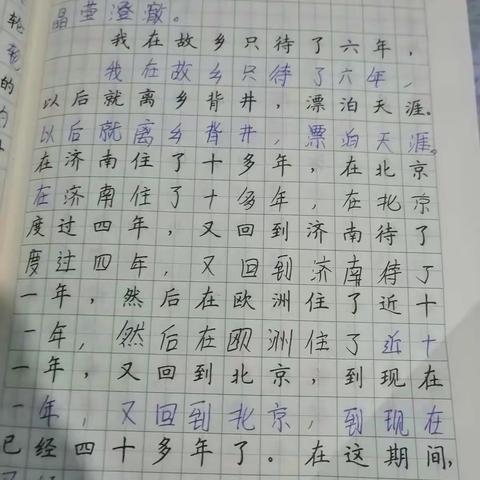 晶莹澄澈。
我在故乡只待了六年，
我在故乡只待了六年，
以后就离乡背井，漂泊天涯。
以后就离乡背井，票泊天涯。
在济南住了十多年，在北京
在济南住了十多年，在北京
度过四年，又回到济南待了
度过四年，又回到济南待了
一年，然后在欧洲住了近十
一年，然后在欧洲住了近十
一年，又回到北京，到现在
一年，又回到北京，到现在
已经四十多年了。在这期间，